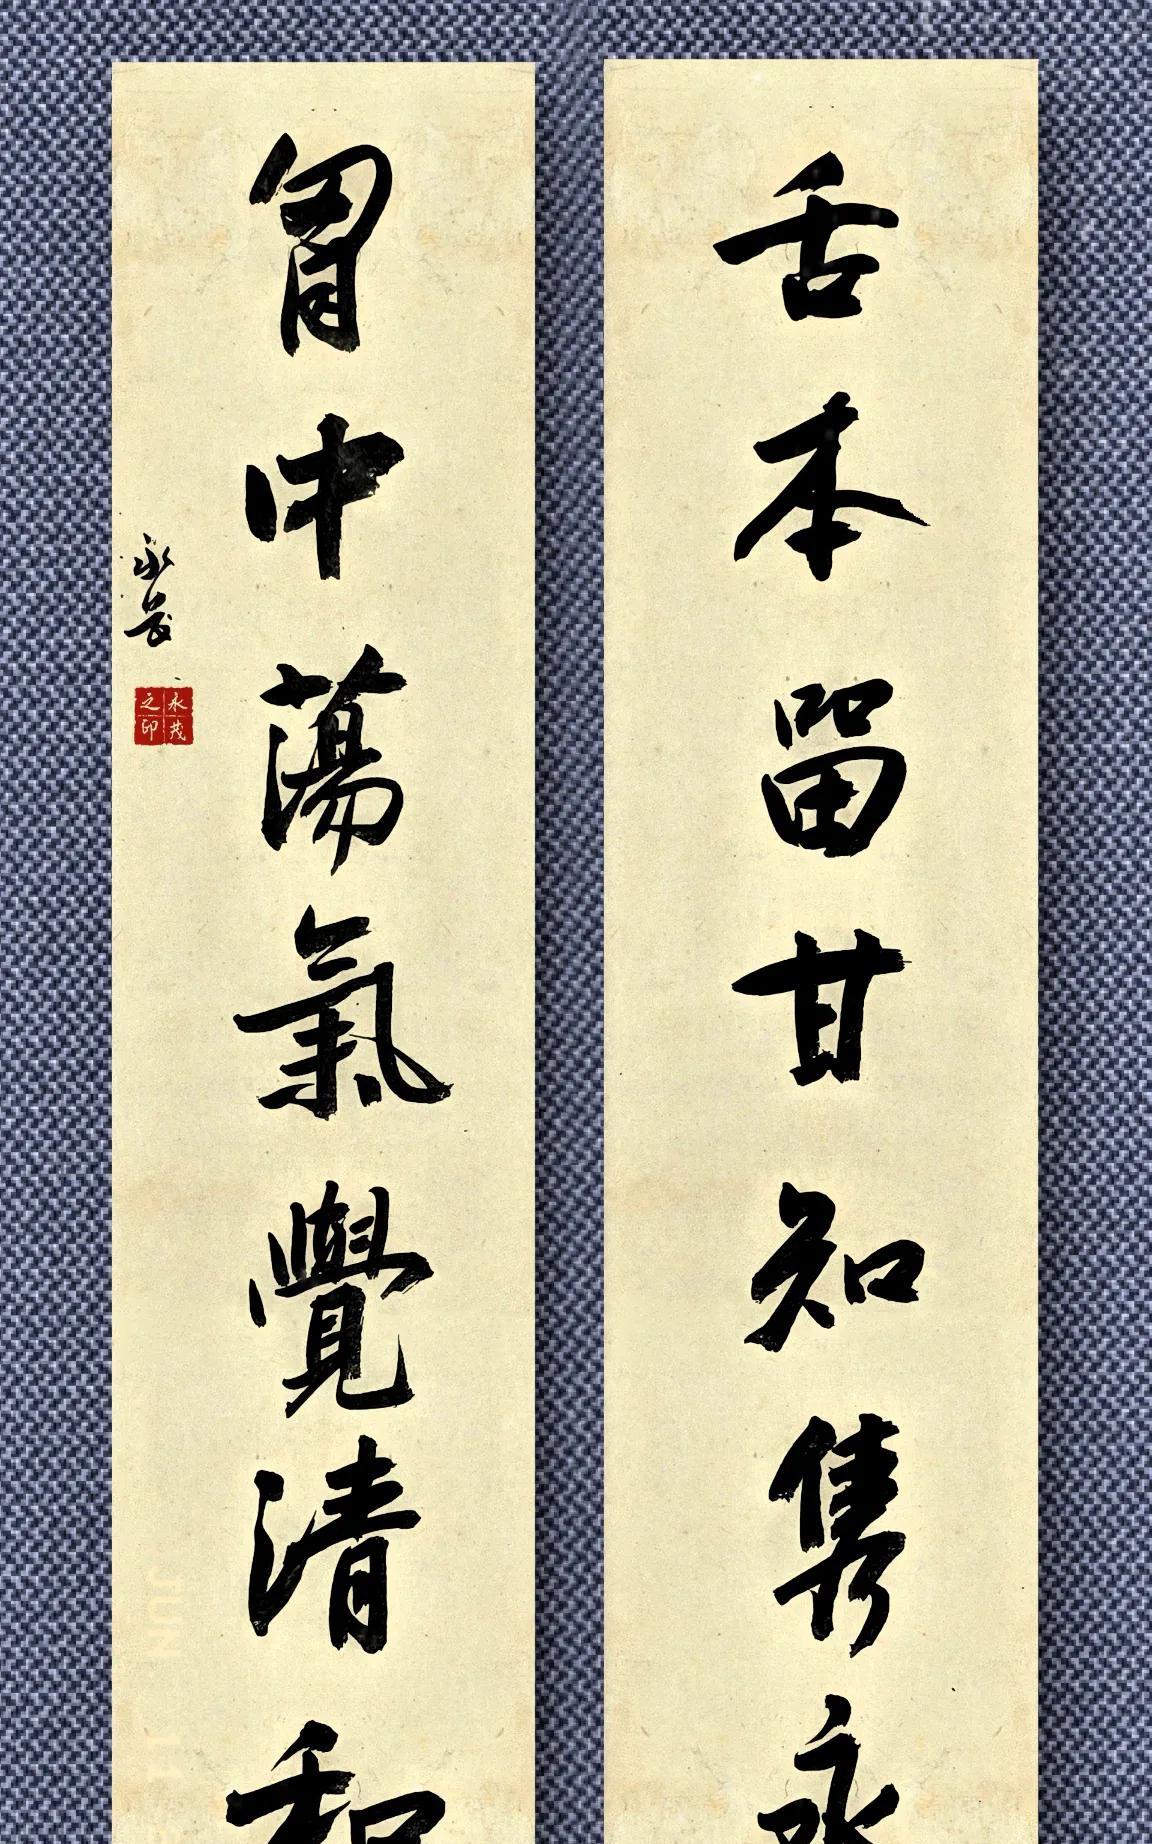 舌本留甘知雋永
胷中蕩氣覺清和
永茂
永茂之印
JUN 1